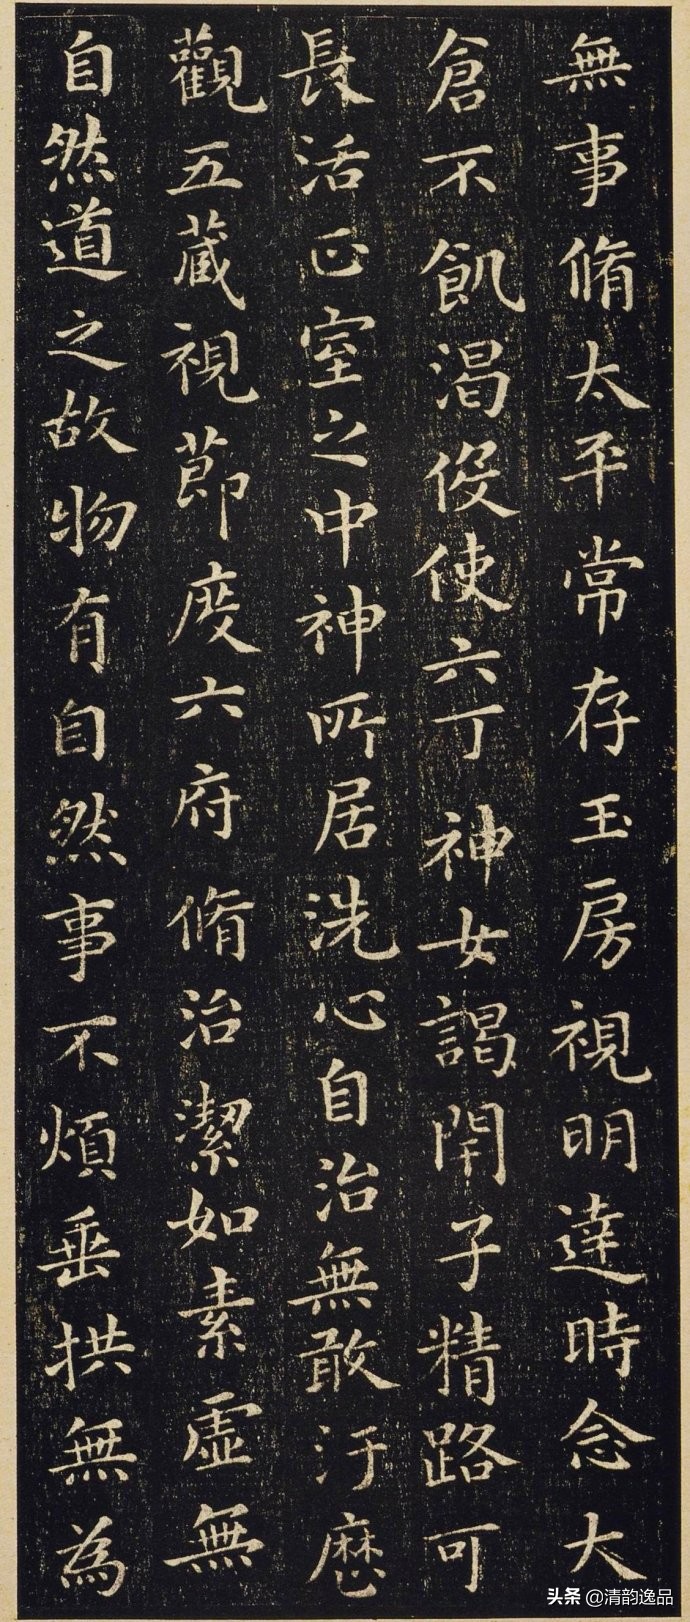 無事脩太平常存玉房視明達時念大
倉不飢渴役使六丁神女謁閇子精路可
長活正室之中神所居洗心自治無敢汙歷
觀五藏視節度六府脩治潔如素虛無
自然道之故物有自然事不煩垂拱無為
头条 @清韵逸品